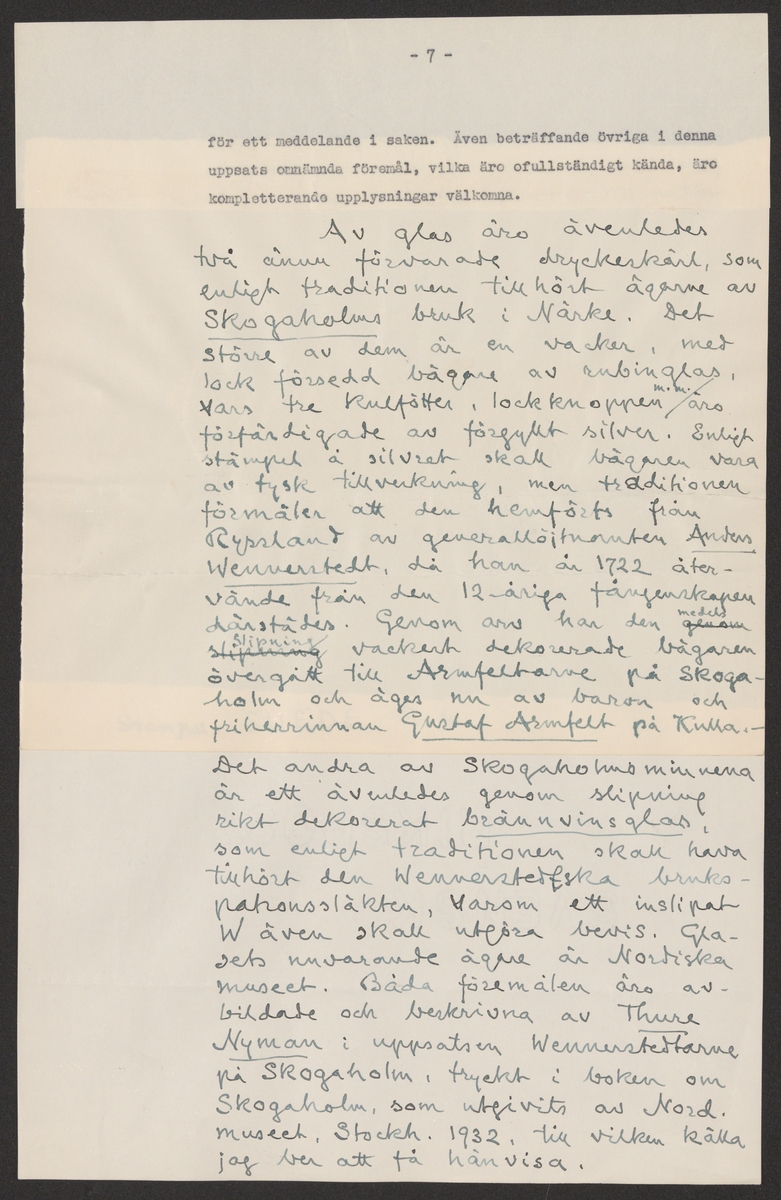 - 7 -
för ett meddelande i saken. Även beträffande övriga i denna
uppsats omnämnda föremål, vilka äro ofullständigt kända, äro
kompletterande upplysningar välkomna.
Av glas äro ävenledes
två ännu förvarade dryckeskärl, som
enligt traditionen tillhört ägarne av
Skogaholms bruk i Närke. Det
större av dem är en vacker, med
lock försedd bägare av rubinglas,
vars tre kulfötter, lockknoppen m.m. äro
förfärdigade av förgyllt silver. Enligt
stämpel å silvret skall bägaren vara
av tysk tillverkning, men traditionen
förmäler att den hemförts från
Ryssland av generallöjtnanten Anders
Wennerstedt, då han år 1722 åter-
vände från den 12-åriga fångenskapen
därstädes. Genom arv har den genom medels
slipning slipning vackert dekorerade bägaren
övergått till Armfeltarne på Skoga-
holm och äges nu av baron och
friherrinnan Gustaf Armfelt på Kulla.-
Det andra av Skogaholmsminnena
är ett ävenledes genom slipning
rikt dekorerat brännvinsglas,
som enligt traditionen skall hava
tillhört den Wennerstedtska bruks-
patronssläkten, varom ett inslipat
W även skall utgöra bevis. Gla-
sets nuvarande ägare är Nordiska
museet. Båda föremålen äro av-
bildade och beskrivna av Thure
Nyman i uppsatsen Wennerstedtarne
på Skogaholm, tryckt i boken om
Skogaholm, som utgivits av Nord.
museet, Stockh. 1932, till vilken källa
jag ber att få hänvisa.